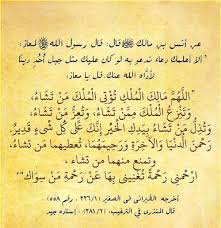 عن أنس بن مالك ﷺ قال: قال رسول الله ﷺ لمعاذ:
"ألا أعلمك دعاء تدعو به لو كان عليك مثل جبل أُحُدٍ ديناً
لأداه الله عنك قل يا معاذ:
"اللَّهُمَّ مَالِكَ الْمُلْكِ تُؤْتِي الْمُلْكَ مَنْ تَشَاءُ،
وَتَنْزِعُ الْمُلْكَ مِمَّنْ تَشَاءُ، وَتُعِزُّ مَنْ تَشَاءُ،
وَتُذِلُّ مَنْ تَشَاءُ بِيَدِكَ الْخَيْرُ إِنَّكَ عَلَى كُلِّ شَيْءٍ قَدِيرٌ،
رَحْمَنَ الدُّنْيَا وَالْآخِرَةِ وَرَحِيمَهُمَا، تُعْطِيهِمَا مَنْ تَشَاءُ
وَتَمْنَعُ مِنْهُمَا مَنْ تَشَاءُ
ارْحَمْنِي رَحْمَةً تُغْنِينِي بِهَا عَنْ رَحْمَةِ مَنْ سِوَاكَ"
أخرجه الطبراني في الصغير (٣٣٦/١ رقم ٥٥٨)
قال المنذري في الترغيب (٣٨١/٢): إسناده جيد